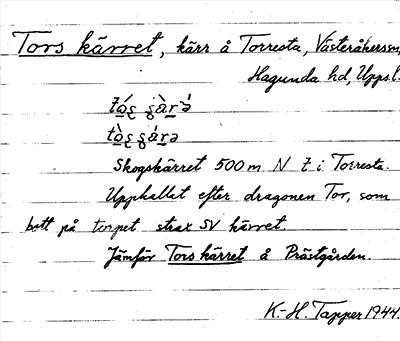 Tors kärret, kärr å Torresta, Västeråkerssn,
Hagunda hd, Upps.l.
Skogskärret 500 m N t i Torresta.
Uppkallat efter dragonen Tor, som
bott på torpet strax SV kärret.
Jämför Tors kärret å Prästgården.
K.-H. Tapper 1944.